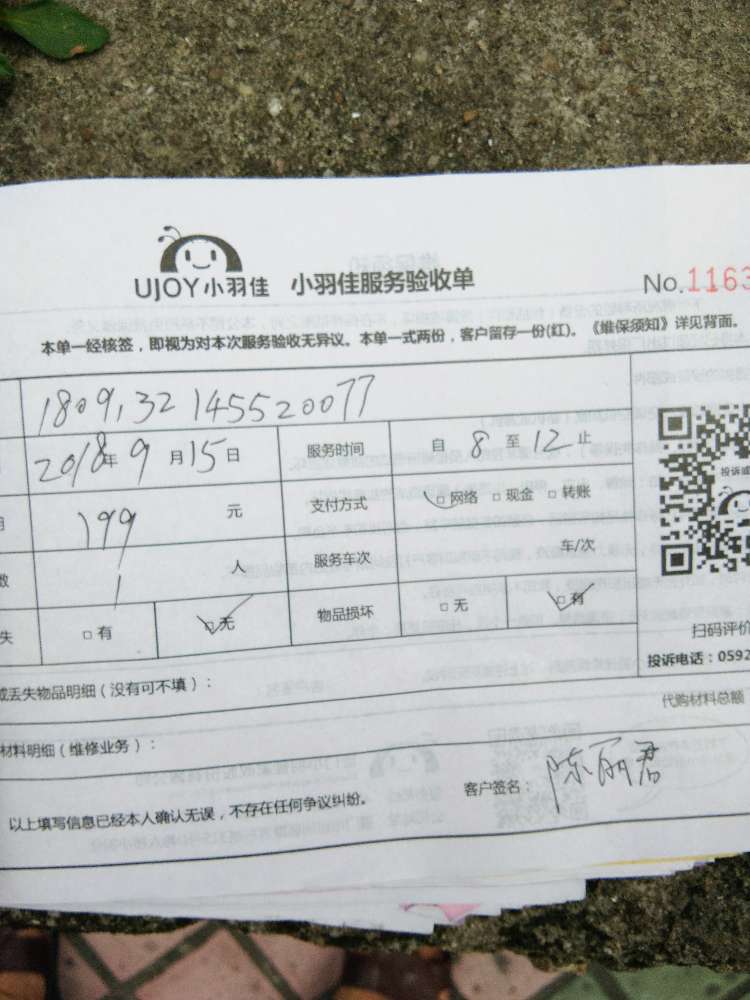 UJOY小羽佳 小羽佳服务验收单 No.1163
本单一经核签，即视为对本次服务验收无异议。本单一式两份，客户留存一份(红)。《维保须知》详见背面。
1809132145520077
2018年9月15日 服务时间 自8至12止
199元 支付方式 □网络 □现金 □转账
数 1人 服务车次 车/次
失 □有 □无 物品损坏 □无 □有
扫码评价
投诉电话：0592
或丢失物品明细（没有可不填）：
代购材料总额
材料明细（维修业务）：
以上填写信息已经本人确认无误，不存在任何争议纠纷。 客户签名：陈丽君